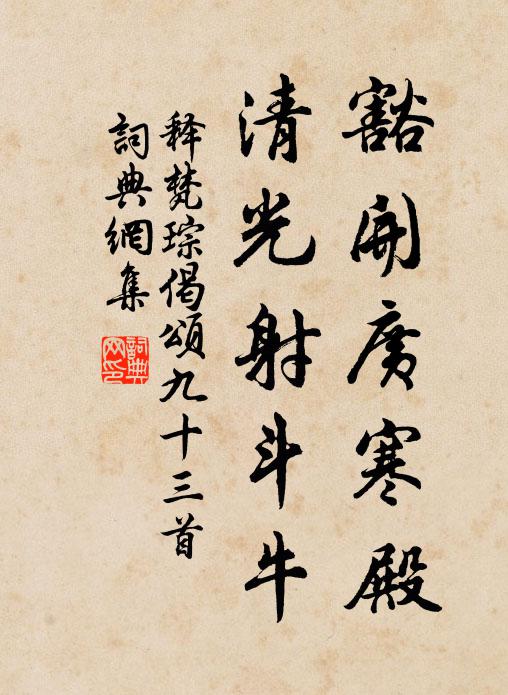 豁開廣寒殿
清光射斗牛
释梵琮偈頌九十三首
詞典網集
詞典网印